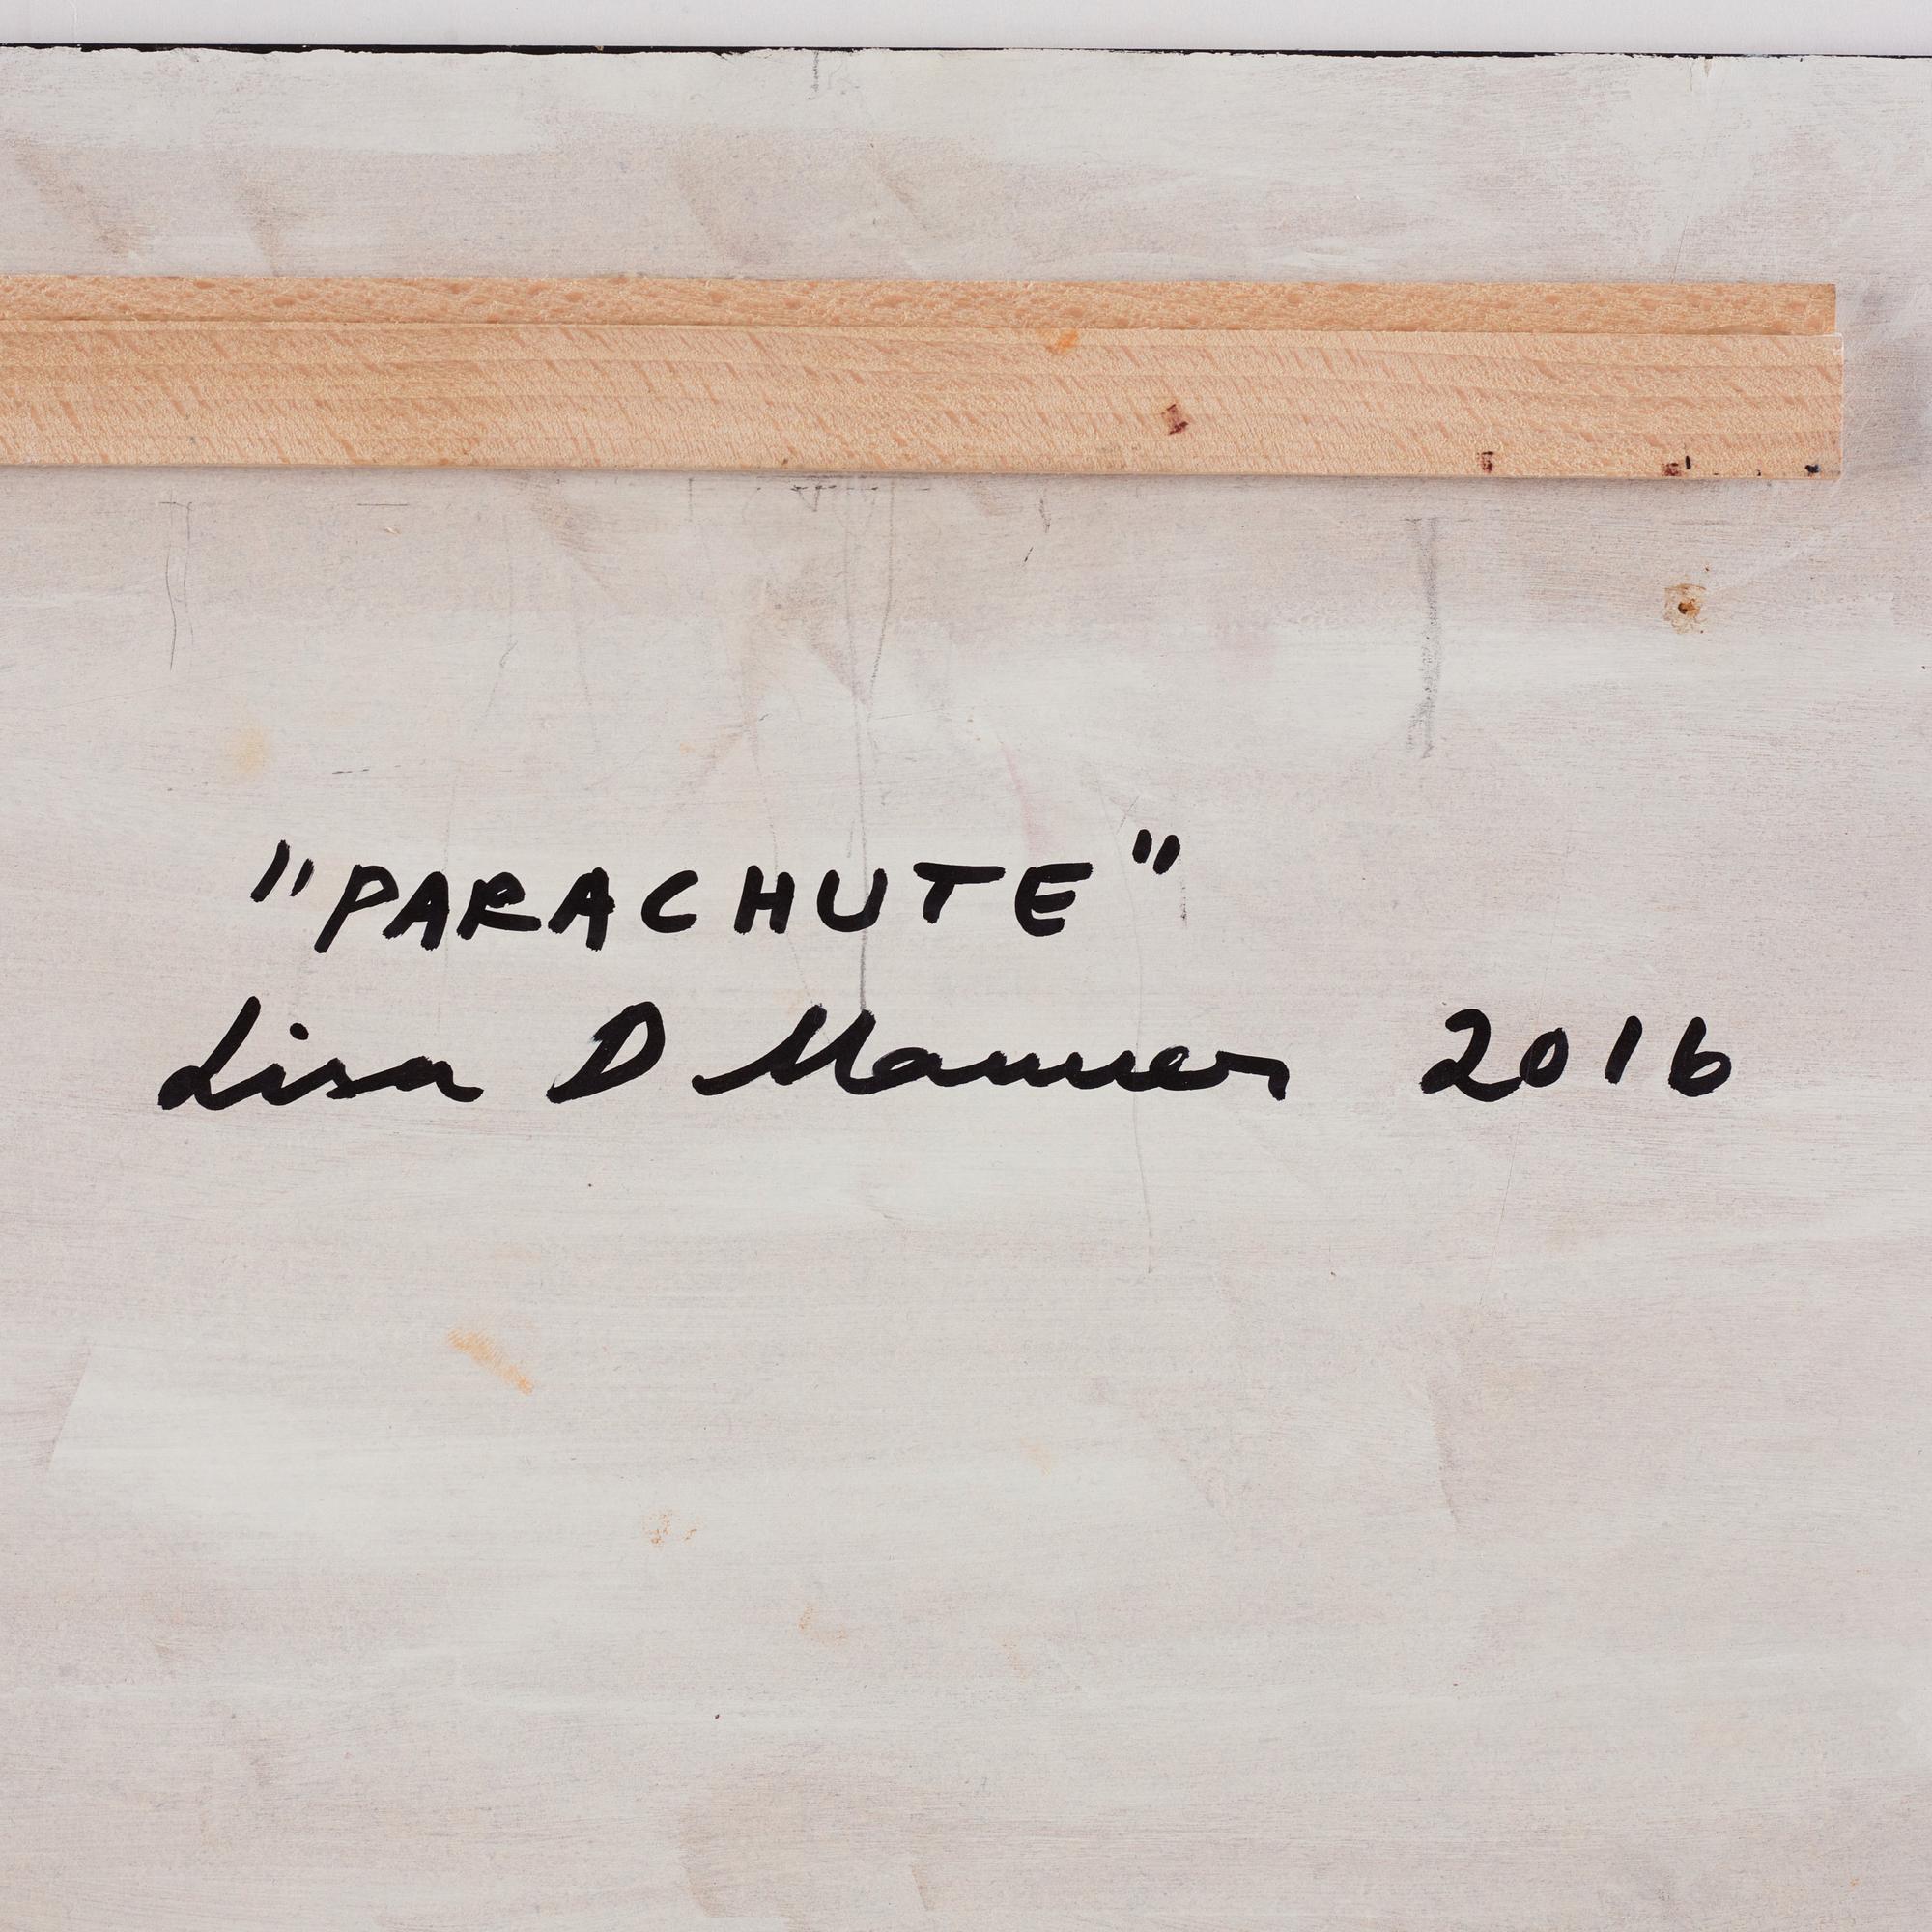 "PARACHUTE"
Lisa D Manner 2016